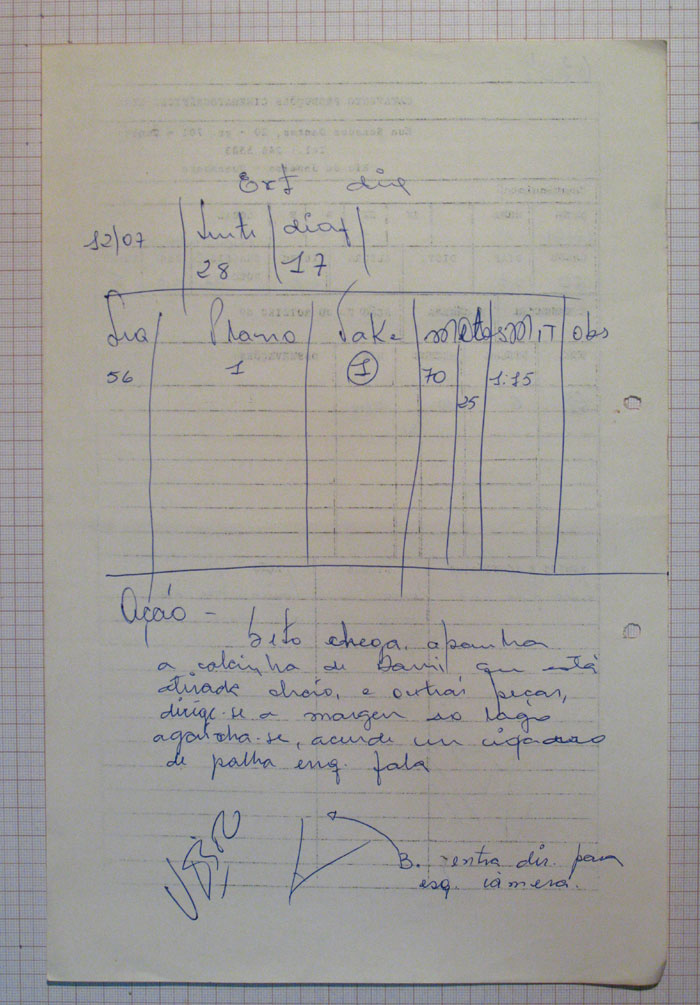 Ext dia
12/07 | Lente | diaf |
28 | 17
Plano | Take | Metros | MIT | obs
56 | 1 | 1 | 70 | 1:15
25
Ação - Beto chega, apanha
a calcinha de que está
atirada chão, e outras peças,
dirige-se a margem do lago
agacha-se, acende um cigarro
de palha enq. fala
B. entra dir. para
esq. câmera.